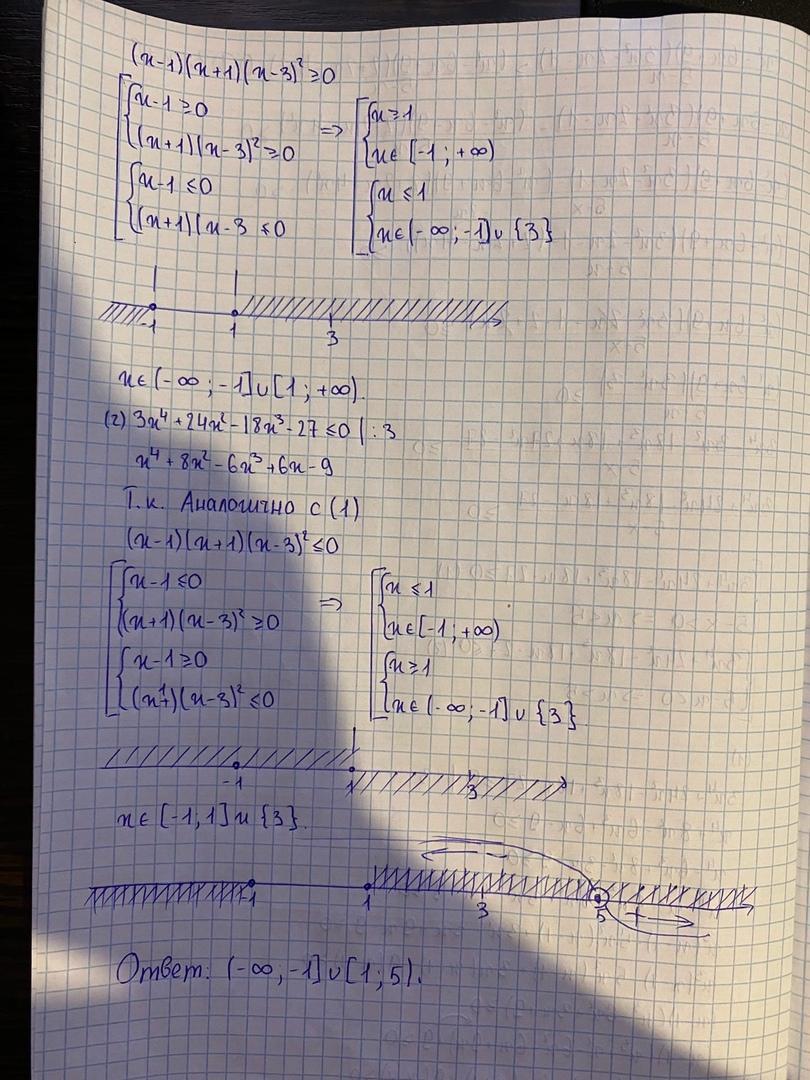 (x-1)(x+1)(x-3)² ≥ 0
x-1 ≥ 0 ⇒ x ≥ 1
(x+1)(x-3)² ≥ 0 x ∈ [-1; +∞)
x-1 ≤ 0 x ≤ 1
(x+1)(x-3 ≤ 0 x ∈ (-∞; -1] ∪ {3}
-1 1 3
x ∈ (-∞; -1] ∪ [1; +∞).
(2) 3x⁴ + 24x² - 18x³ - 27 ≤ 0 | : 3
x⁴ + 8x² - 6x³ + 6x - 9
Т.к. Аналогично с (1)
(x-1)(x+1)(x-3)² ≤ 0
x-1 ≤ 0 ⇒ x ≤ 1
(x+1)(x-3)² ≥ 0 x ∈ [-1; +∞)
x-1 ≥ 0 x ≥ 1
(x+1)(x-3)² ≤ 0 x ∈ (-∞; -1] ∪ {3}
-1 1 3
x ∈ [-1, 1] и {3}.
-1 1 3 5 +
Ответ: (-∞, -1] ∪ [1; 5).